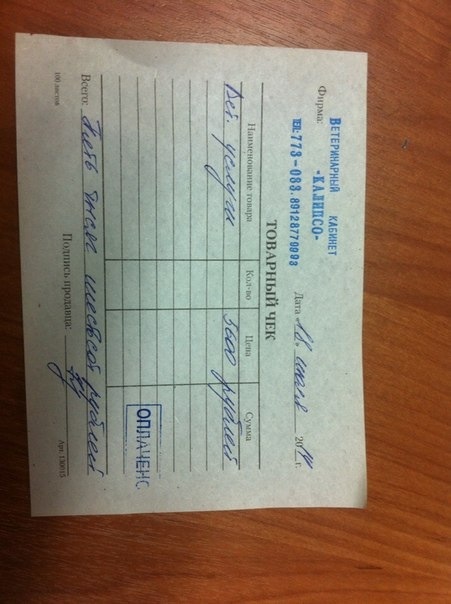 ВЕТЕРИНАРНЫЙ КАБИНЕТ
"КАЛИПСО"
Фирма:
ТЕЛ: 773-083. 89128779993
Дата «18» июля 2014 г.
ТОВАРНЫЙ ЧЕК
Наименование товара Кол-во Цена Сумма
Вет. услуги 5600 рублей
ОПЛАЧЕНО
Всего: Пять тысяч шестьсот рублей
Подпись продавца:
100 листов Арт. 130015